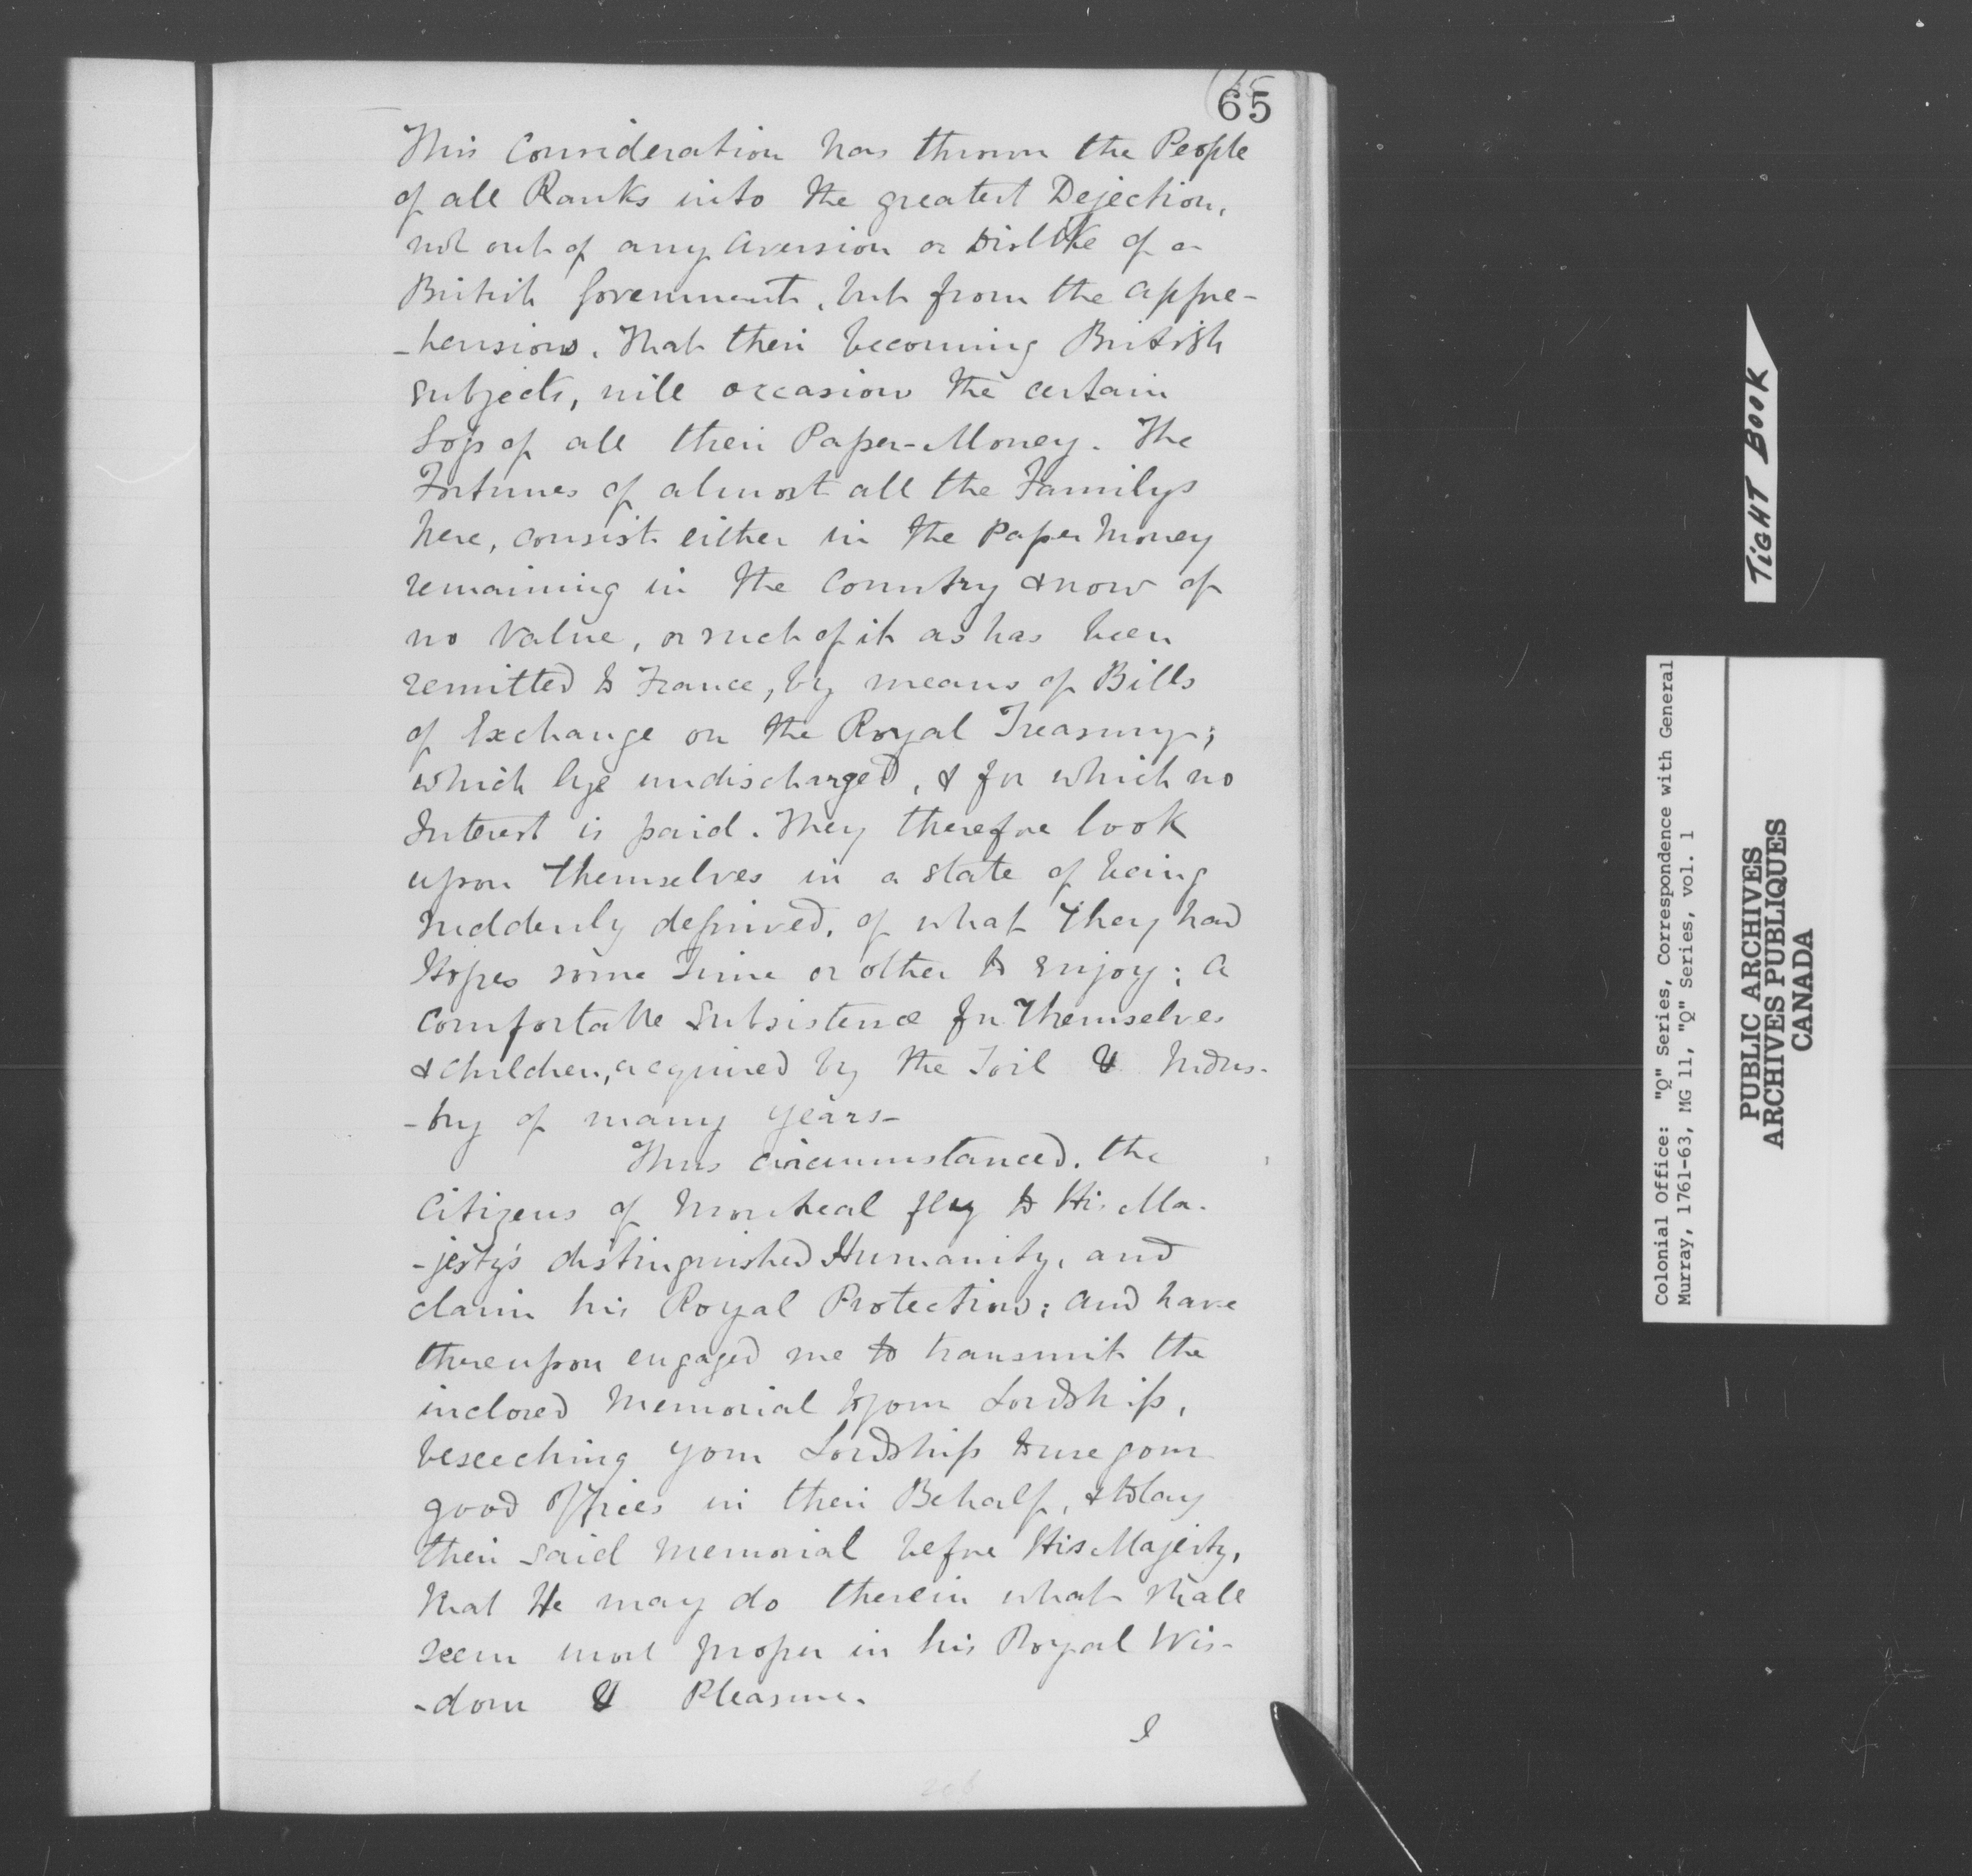 65
This Consideration has thrown the People
of all Ranks into the greatest Dejection,
not out of any Aversion or Dislike of a
British Government, but from the Appre-
-hension, that their becoming British
Subjects, will occasion the certain
Loss of all their Paper-Money. The
Fortunes of almost all the Familys
here, consist either in the Paper Money
remaining in the Country & now of
no Value, or such of it as has been
remitted to France, by means of Bills
of Exchange on the Royal Treasury;
which lye undischarged, & for which no
Interest is paid. They therefore look
upon themselves in a State of being
suddenly deprived, of what they had
Hopes some Time or other to enjoy; a
Comfortable Subsistence for Themselves
& Children, acquired by the Toil & Indus-
-try of many Years-
Thus circumstanced, the
Citizens of Montreal fly to His Ma-
-jesty's distinguished Humanity, and
claim his Royal Protection; and have
thereupon engaged me to transmit the
inclosed Memorial to your Lordship,
beseeching your Lordship to use your
good Offices in their Behalf, & to lay
their said Memorial before His Majesty,
that He may do therein what shall
seem most proper in his Royal Wis-
-dom & Pleasure.
I
TIGHT BOOK
Colonial Office: "Q" Series, Correspondence with General
Murray, 1761-63, MG 11, "Q" Series, vol. 1
PUBLIC ARCHIVES
ARCHIVES PUBLIQUES
CANADA